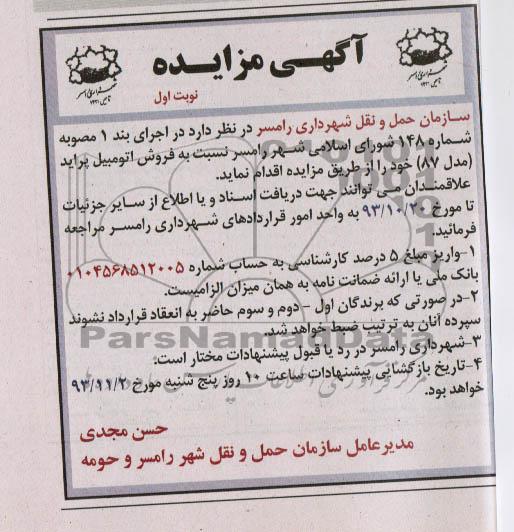 آگهی مزایده
نوبت اول
سازمان حمل و نقل شهرداری رامسر در نظر دارد در اجرای بند ۱ مصوبه
شماره ۱۴۸ شورای اسلامی شهر رامسر نسبت به فروش اتومبیل پراید
(مدل ۸۷) خود را از طریق مزایده اقدام نماید.
علاقمندان می توانند جهت دریافت اسناد و یا اطلاع از سایر جزئیات
تا مورخ ۹۳/۱۰/۲۰ به واحد امور قراردادهای شهرداری رامسر مراجعه
فرمائید.
۱-واریز مبلغ ۵ درصد کارشناسی به حساب شماره ۰۱۰۴۵۶۸۵۱۲۰۰۵
بانک ملی یا ارائه ضمانت نامه به همان میزان الزامیست.
۲-در صورتی که برندگان اول - دوم و سوم حاضر به انعقاد قرارداد نشوند
سپرده آنان به ترتیب ضبط خواهد شد.
۳-شهرداری رامسر در رد یا قبول پیشنهادات مختار است.
۴-تاریخ بازگشایی پیشنهادات ساعت ۱۰ روز پنج شنبه مورخ ۹۳/۱۱/۲
خواهد بود.
حسن مجدی
مدیرعامل سازمان حمل و نقل شهر رامسر و حومه
ParsNamadData